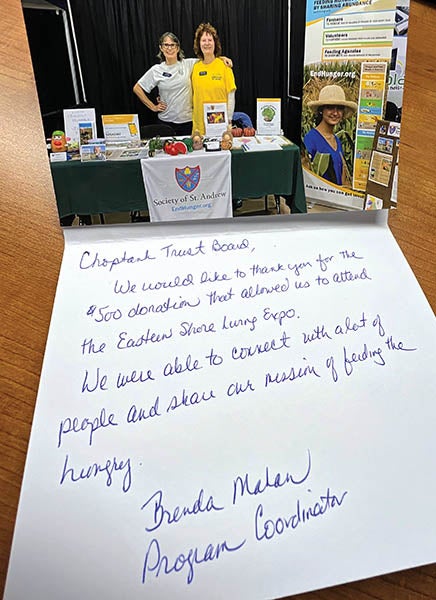 FEEDING
BY SHARING ABUNDANCE
Farmers
Volunteers
Feeding Agencies
EndHunger.org
Society of St. Andrew
EndHunger.org
Choptank Trust Board,
We would like to thank you for the
$500 donation that allowed us to attend
the Eastern Shore Living Expo.
We were able to connect with a lot of
people and share our mission of feeding the
hungry.
Brenda Mahan
Program Coordinator